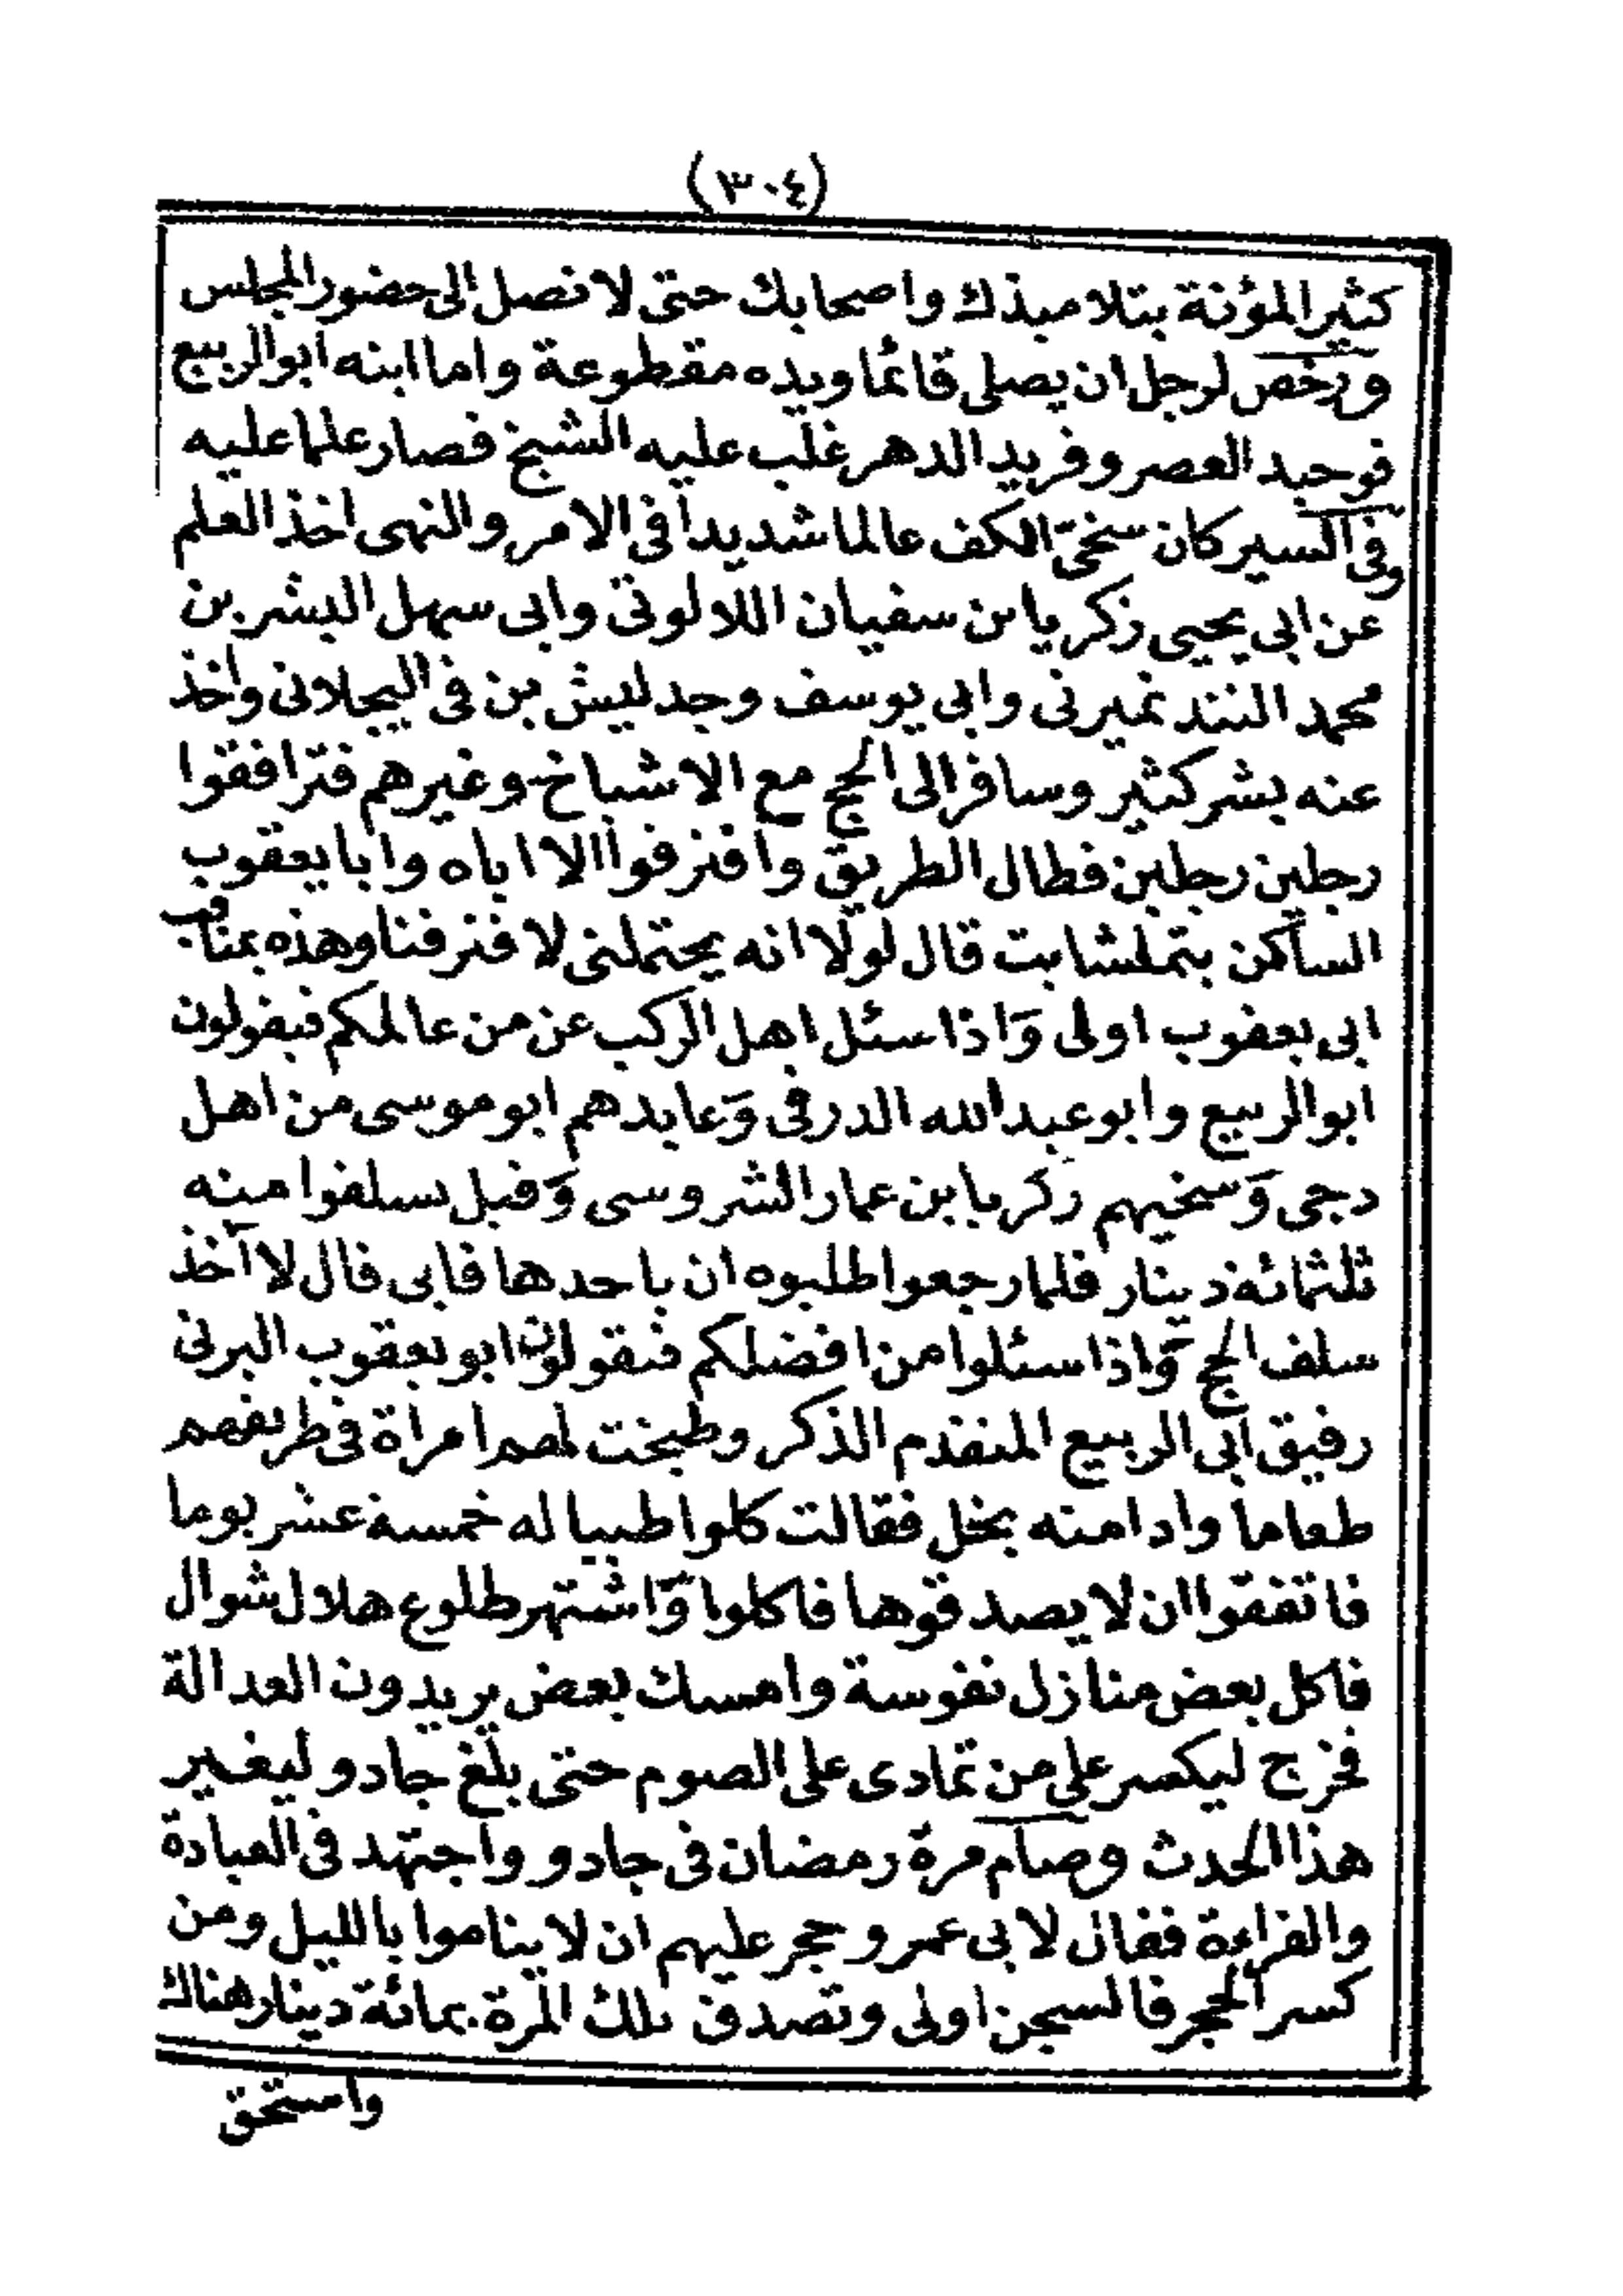 (٣٠٤)
كثير المؤنة بتلاميذك واصحابك حتى لا تصل الى حضور المجلس
ورخص لرجل ان يصلى قائما ويده مقطوعة واما ابنه ابو الربيع
فوحيد العصر وفريد الدهر غلب عليه الشيخ فصار علما عليه
وفى السير كان سخىّ الكف عالما شديدا فى الامر والنهى اخذ العلم
عن ابي يحيى زكريا بن سفيان اللالوتى وابى سهل البشر بن
محمد التندنميرتى وابي يوسف وجدليش بن فى اليجلانى واخذ
عنه بشر كثير وسافر الى الحج مع الاشياخ وغيرهم فترافقوا
رجلين رجلين فطال الطريق وافترقوا الا اياه وابا يعقوب
الساكن بتملشايت قال لولا انه يحتملنى لافترقنا وهذه بمناقب
ابى يعقوب اولى وَاذا سئل اهل الركب عن من عالمكم فيقولون
ابو الربيع وابو عبد الله الدرفى وَعابدهم ابو موسى من اهل
دجى وَسخيهم زكريا بن عمار الشروسى وَقيل تسلفوا منه
ثلثمائة دينار فلما رجعوا طلبوه ان ياخدها فابى قال لا آخذ
سلف الحج وَاذا سئلوا من افضلكم فيقولون ابو يعقوب البرنى
رفيق ابى الربيع المتقدم الذكر وطبخت لهم امراة فى طريقهم
طعاما وادامته بخل فقالت كلوا طيبا له خمسة عشر يوما
فاتفقوا ان لا يصدقوها فاكلوا وَاشتهر طلوع هلال شوال
فاكل بعض منازل نفوسة وامسك بعض يريدون العدالة
فخرج ليكسر على من تمادى على الصوم حتى بلغ جادو ليغير
هذا الحدث وصام مرة رمضان فى جادو واجتهد فى العبادة
والقراءة فقال لابى عمرو حجر عليهم ان لا يناموا بالليل ومن
كسر الحجر فالسجن اولى وتصدق تلك المرة بمائة دينار هناك
واستحق